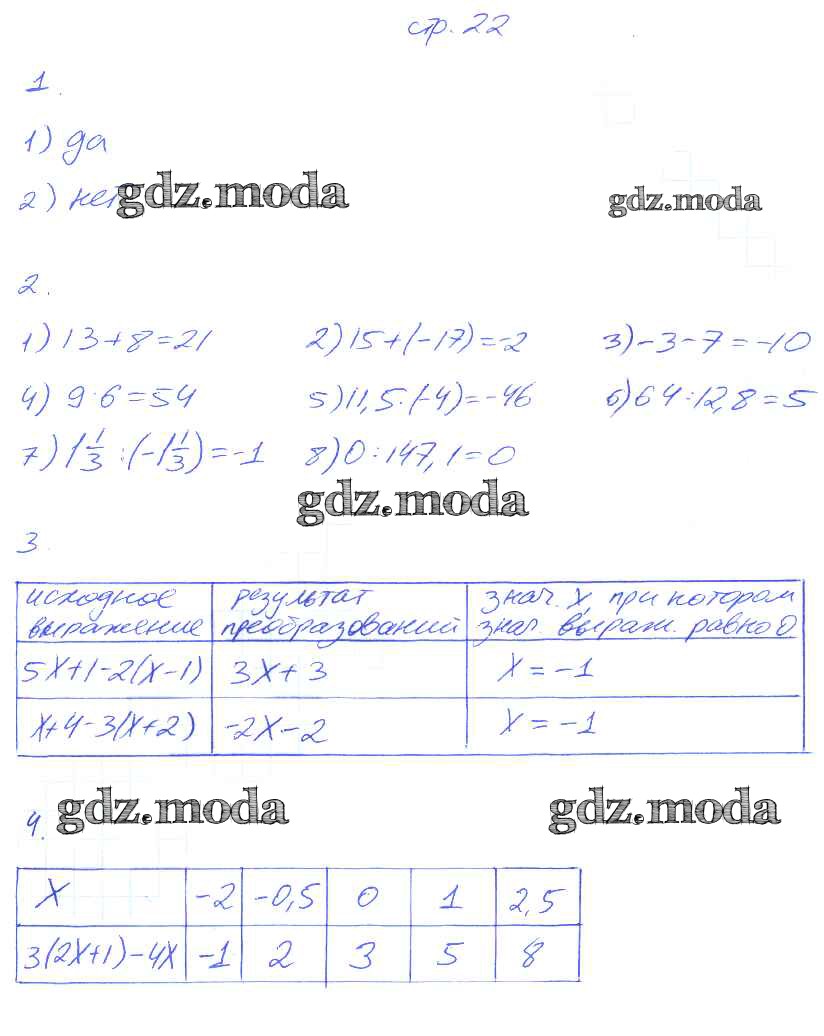 стр. 22
1.
1) да
2) нет
gdz.moda
gdz.moda
2.
1) 13+8=21 2) 15+(-17)=-2 3) -3-7=-10
4) 9·6=54 5) 11,5·(-4)=-46 6) 64:12,8=5
7) 1 1/3 : (-1 1/3) = -1 8) 0:147,1=0
gdz.moda
3.
исходное выражение | результат преобразований | знач. x, при котором знач. выраж. равно 0
5x+1-2(x-1) | 3x+3 | x = -1
x+4-3(x+2) | -2x-2 | x = -1
gdz.moda gdz.moda
4.
x | -2 | -0,5 | 0 | 1 | 2,5
3(2x+1)-4x | -1 | 2 | 3 | 5 | 8